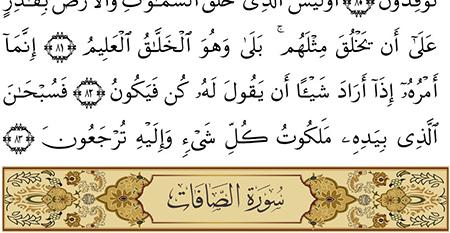 تُوقِدُونَ ۝٨٠ أَوَلَيْسَ ٱلَّذِى خَلَقَ ٱلسَّمَٰوَٰتِ وَٱلْأَرْضَ بِقَٰدِرٍ
عَلَىٰٓ أَن يَخْلُقَ مِثْلَهُم ۚ بَلَىٰ وَهُوَ ٱلْخَلَّٰقُ ٱلْعَلِيمُ ۝٨١ إِنَّمَآ
أَمْرُهُۥٓ إِذَآ أَرَادَ شَيْـًٔا أَن يَقُولَ لَهُۥ كُن فَيَكُونُ ۝٨٢ فَسُبْحَٰنَ
ٱلَّذِى بِيَدِهِۦ مَلَكُوتُ كُلِّ شَىْءٍ وَإِلَيْهِ تُرْجَعُونَ ۝٨٣
سُورَةُ الصَّافَّات